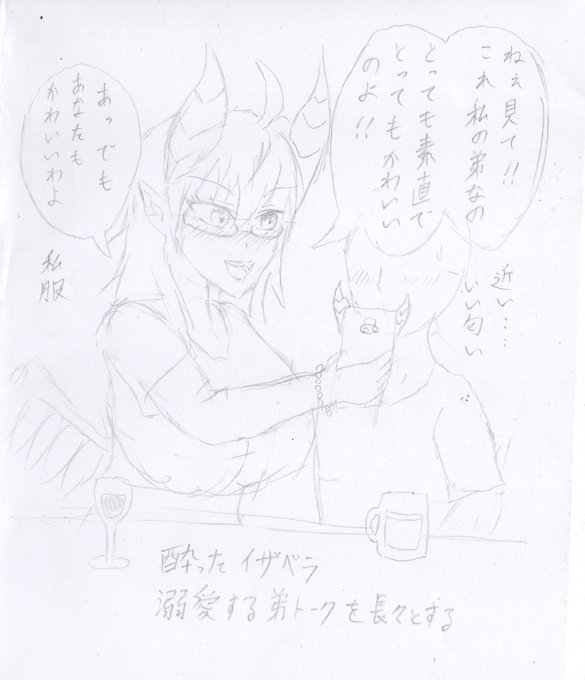 ねぇ見て!!
これ私の弟なの
とっても素直で
とってもかわいい
のよ!!
あっでも
あなたも
かわいいわよ
私服
近い……
いい匂い
酔ったイザベラ
溺愛する弟トークを長々とする